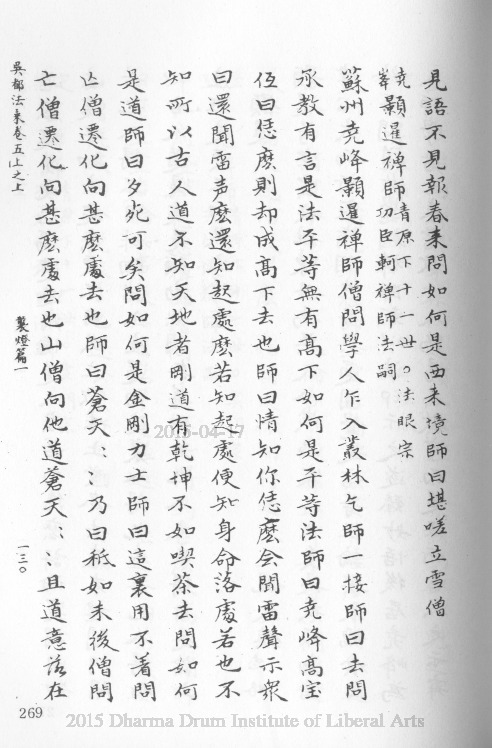 見語不見報春来問如何是西来境師曰堪嗟立雪僧
尭峯顥暹禅師青原下十一世。法眼宗
功臣軻禅師法嗣
蘇州尭峰顥暹禅師僧問學人乍入叢林乞師一接師曰去問
承教有言是法平等無有高下如何是平等法師曰尭峰高宝
伍曰恁麽則却成高下去也師曰情知你恁麽会聞雷聲示衆
曰還聞雷声麽還知起處麽若知起處便知身命落處若也不
知所以古人道不知天地者剛道有乾坤不如喫茶去問如何
是道師曰夕死可矣問如何是金剛力士師曰這裏用不着問
亾僧遷化向甚麽處去也師曰蒼天〻〻乃曰秖如末後僧問
亡僧遷化向甚麽處去也山僧向他道蒼天〻〻且道意落在
吳都法乗卷五上之上
製燈篇一
一三〇
269
2015-04-17
2015 Dharma Drum Institute of Liberal Arts